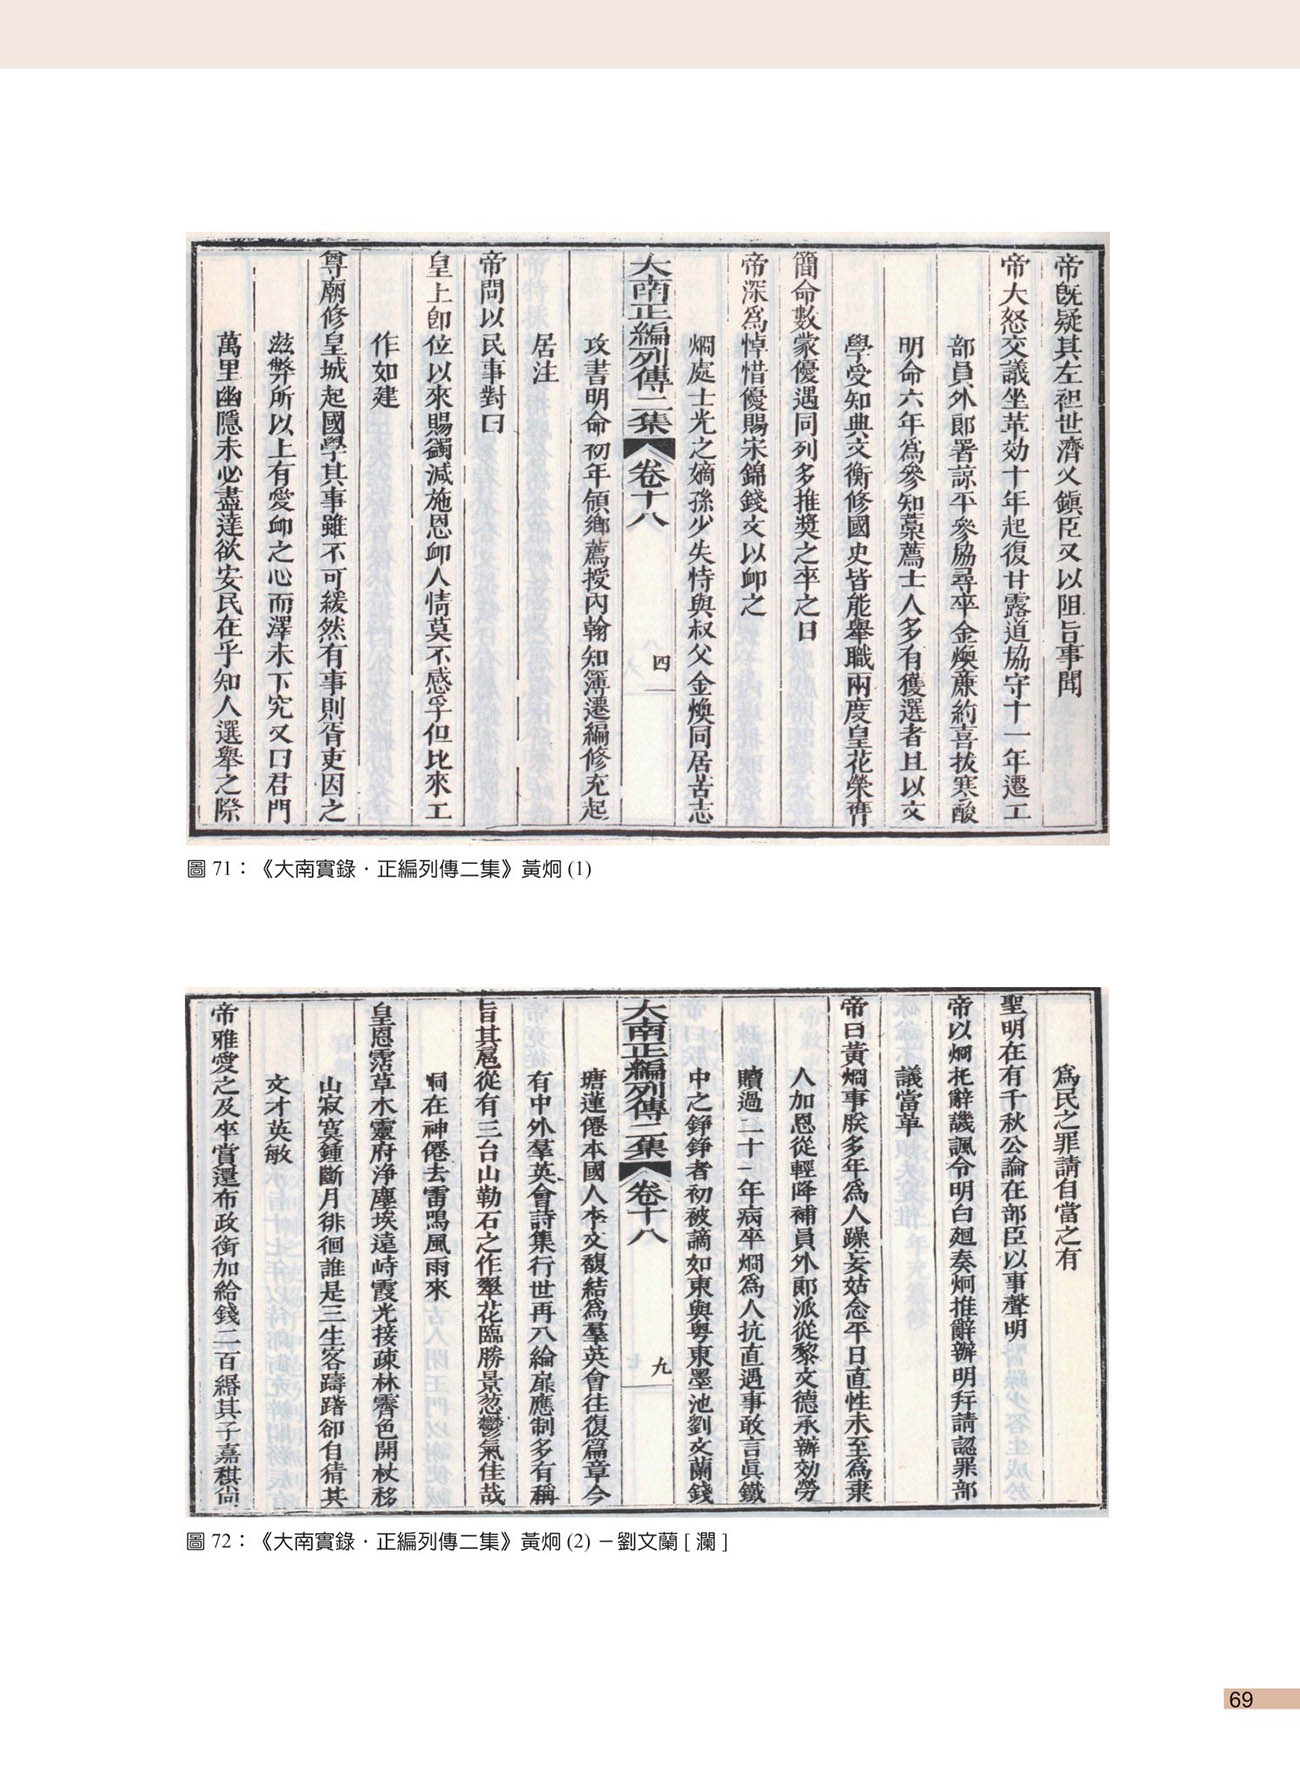 帝既疑其左袒世濟乂鎮臣又以阻旨事聞
帝大怒交議坐革効十年起復甘露道協守十一年遷工
部員外郎署諒平參協尋卒金煥廉約喜拔寒酸
明命六年為參知藁薦士人多有獲選者且以文
學受知典文衡修國史皆能舉職兩度皇花榮膺
簡命數蒙優遇同列多推獎之卒之日
帝深為悼惜優賜宋錦錢文以卹之
烱處士光之嫡孫少失恃與叔父金煥同居苦志
大南正編列傳二集 卷十八 四
攻書明命初年領鄉薦授內翰知簿遷編修充起
居注
帝問以民事對曰
皇上卽位以來賜蠲減施恩卹人情莫不感孚但比來工
作如建
尊廟修皇城起國學其事雖不可緩然有事則胥吏因之
滋弊所以上有愛卹之心而澤未下究又曰君門
萬里幽隱未必盡達欲安民在乎知人選舉之際
圖 71：《大南實錄‧正編列傳二集》黃炯 (1)
為民之罪請自當之有
聖明在有千秋公論在部臣以事聲明
帝以烱托辭譏諷令明白廻奏烱推辭辦明幷請認罪部
議當革
帝曰黃烱事朕多年為人躁妄姑念平日直性未至為棄
人加恩從輕降補員外郎派從黎文德承辦効勞
贖過二十一年病卒烱為人抗直遇事敢言眞鐵
中之錚錚者初被謫如東與粵東墨池劉文蘭錢
大南正編列傳二集 卷十八 九
塘蓮僊本國人李文馥結為羣英會往復篇章今
有中外羣英會詩集行世再入綸扉應制多有稱
旨其扈從有三台山勒石之作翠花臨勝景葱鬱氣佳哉
峒在神僊去雷鳴風雨來
皇恩霑草木靈府净塵埃遠峙霞光接疎林霽色開杖移
山寂寞鍾斷月徘徊誰是三生客躊躇卻自猜其
文才英敏
帝雅愛之及卒賞還布政銜加給錢二百緡其子嘉稘尙
圖 72：《大南實錄‧正編列傳二集》黃炯 (2) －劉文蘭 [ 瀾 ]
69